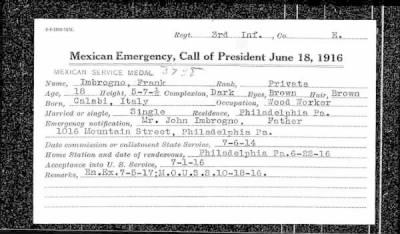 Regt. 3rd Inf., Co. E.
Mexican Emergency, Call of President June 18, 1916
MEXICAN SERVICE MEDAL
Name, Imbrogno, Frank Rank, Private
Age, 18 Height, 5-7-½ Complexion, Dark Eyes, Brown Hair, Brown
Born, Calabi, Italy Occupation, Wood Worker
Married or single, Single Residence, Philadelphia Pa.
Emergency notification, Mr. John Imbrogno, Father
1016 Mountain Street, Philadelphia Pa.
Date commission or enlistment State Service, 7-6-14
Home Station and date of rendezvous, Philadelphia Pa. 6-22-16
Acceptance into U. S. Service, 7-1-16
Remarks, En.Ex.7-5-17;M.O.U.S.S.10-18-16.